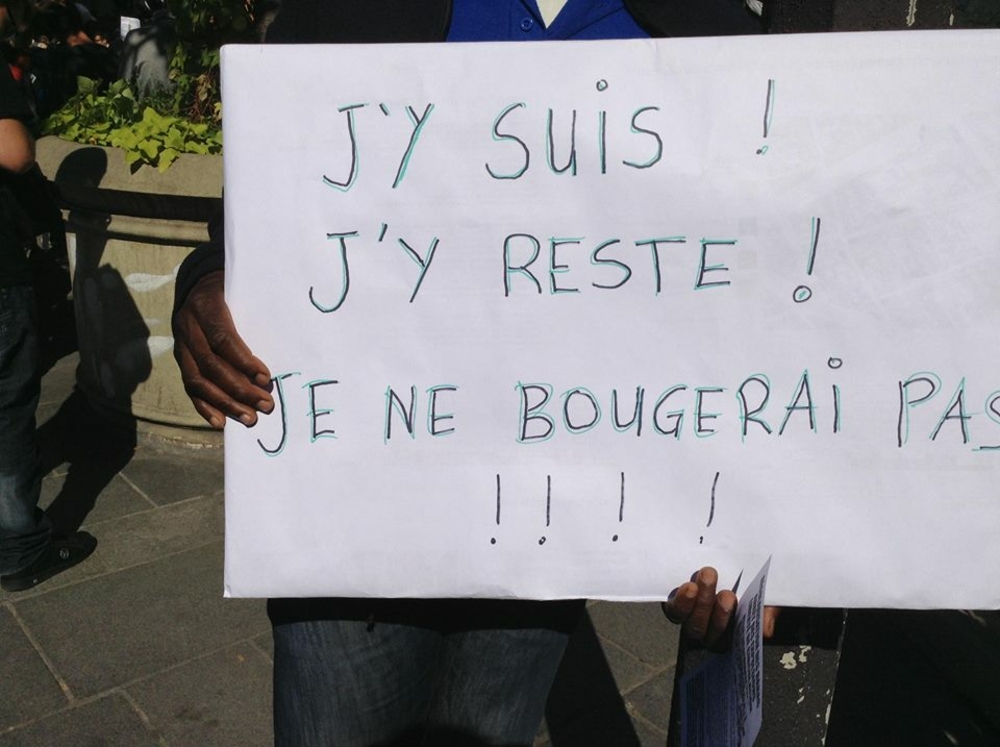 J'Y SUiS !
J'Y RESTE !
JE NE BOUGERAi PAS
! ! ! !